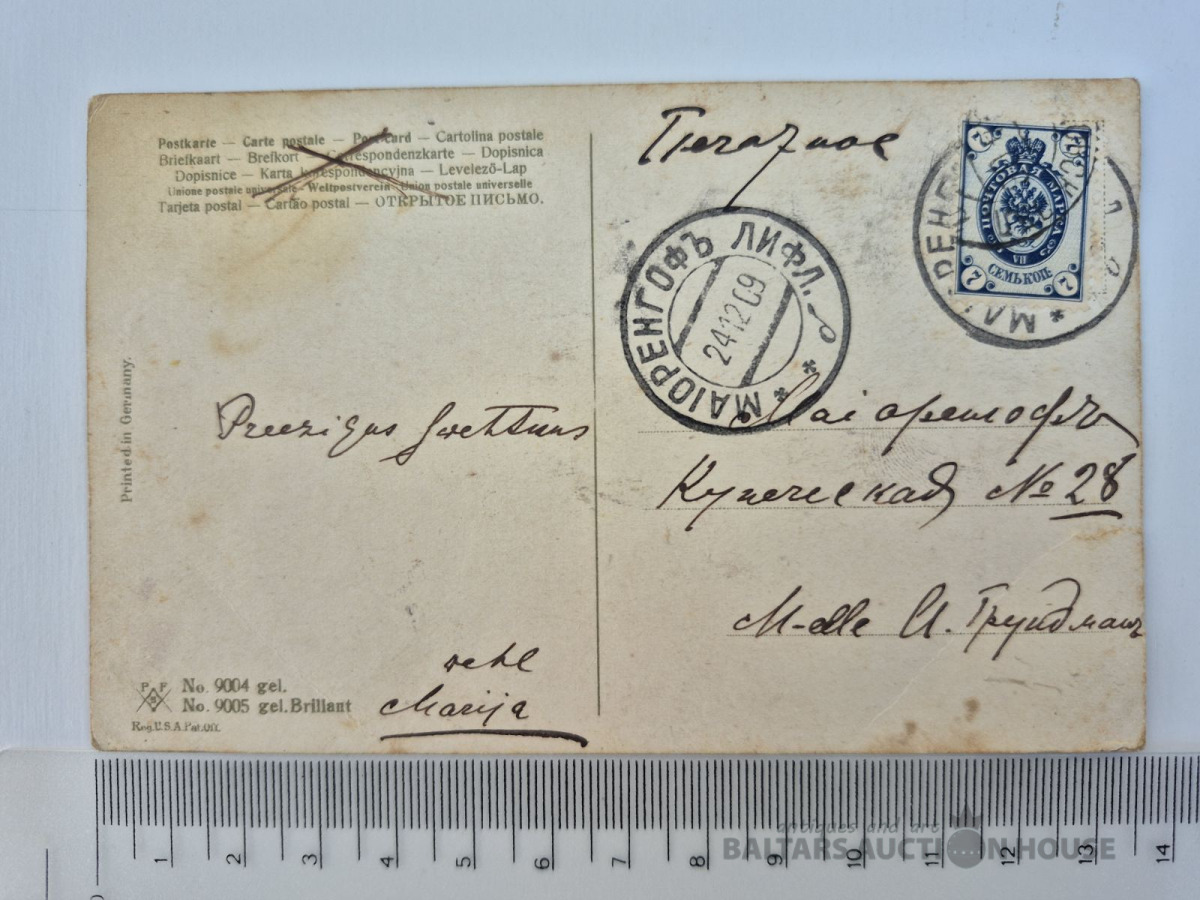 Postkarte — Carte postale — Post card — Cartolina postale
Briefkaart — Brefkort — Correspondenzkarte — Dopisnica
Dopisnice — Karta korespondencyjna — Levelező-Lap
Unione postale universale - Weltpostverein - Union postale universelle
Tarjeta postal — Cartão postal — ОТКРЫТОЕ ПИСЬМО.
Printed in Germany.
Preezigus swehtkus
wehl
Marija
P F S
No. 9004 gel.
No. 9005 gel. Brillant
Reg. U.S.A. Pat. Off.
Печатное
МАІОРЕНГОФЪ ЛИФЛ.
24 12 09
7 7
ПОЧТОВАЯ МАРКА
VII
СЕМЬ КОП.
7 7
Маіоренгофъ
Купеческая № 28
M-elle И. Грундманъ
antiques and art
BALTARS AUCTION HOUSE
0 1 2 3 4 5 6 7 8 9 10 11 12 13 14